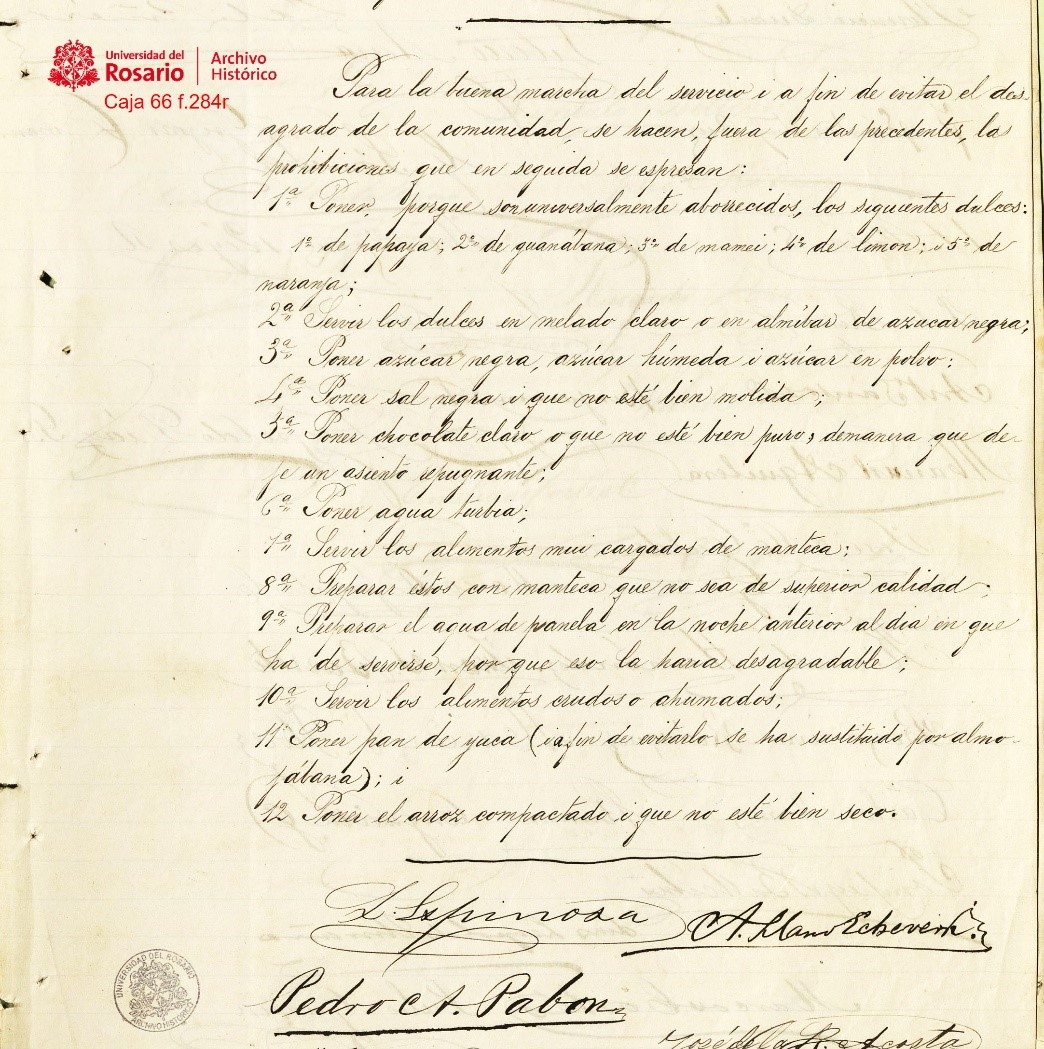 Universidad del
Rosario
Archivo
Histórico
Caja 66 f.284r
Para la buena marcha del servicio i a fin de evitar el des-
agrado de la comunidad, se hacen, fuera de las precedentes, las
prohibiciones que en seguida se espresan:
1ª Poner, porque son universalmente aborrecidos, los siguientes dulces:
1º de papaya; 2º de guanábana; 3º de mamei; 4º de limon; i 5º de
naranja;
2ª Servir los dulces en melado claro o en almíbar de azucar negra;
3ª Poner azúcar negra, azúcar húmeda i azúcar en polvo;
4ª Poner sal negra i que no esté bien molida;
5ª Poner chocolate claro o que no esté bien puro, demanera que de-
je un asiento repugnante;
6ª Poner agua turbia;
7ª Servir los alimentos mui cargados de manteca;
8ª Preparar éstos con manteca que no sea de superior calidad;
9ª Preparar el agua de panela en la noche anterior al dia en que
ha de servirse, por que eso la haria desagradable;
10ª Servir los alimentos crudos o ahumados;
11 Poner pan de yuca (i a fin de evitarlo se ha sustituido por almo-
jábana); i
12 Poner el arroz compactado i que no esté bien seco.
L. Espinosa A. Llano Echeverri.
Pedro A. Pabon
UNIVERSIDAD DEL ROSARIO
ARCHIVO HISTÓRICO
José de la R. Acosta